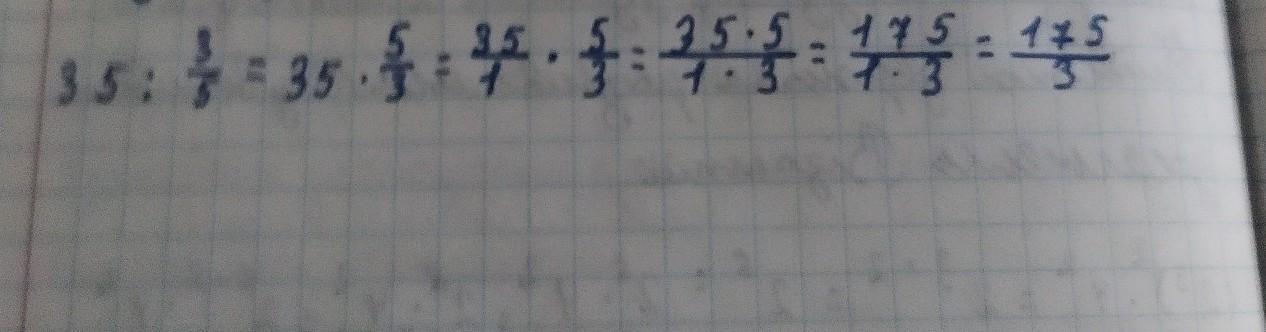 35 : 3/5 = 35 · 5/3 = 35/1 · 5/3 = 35·5/1·3 = 175/1·3 = 175/3